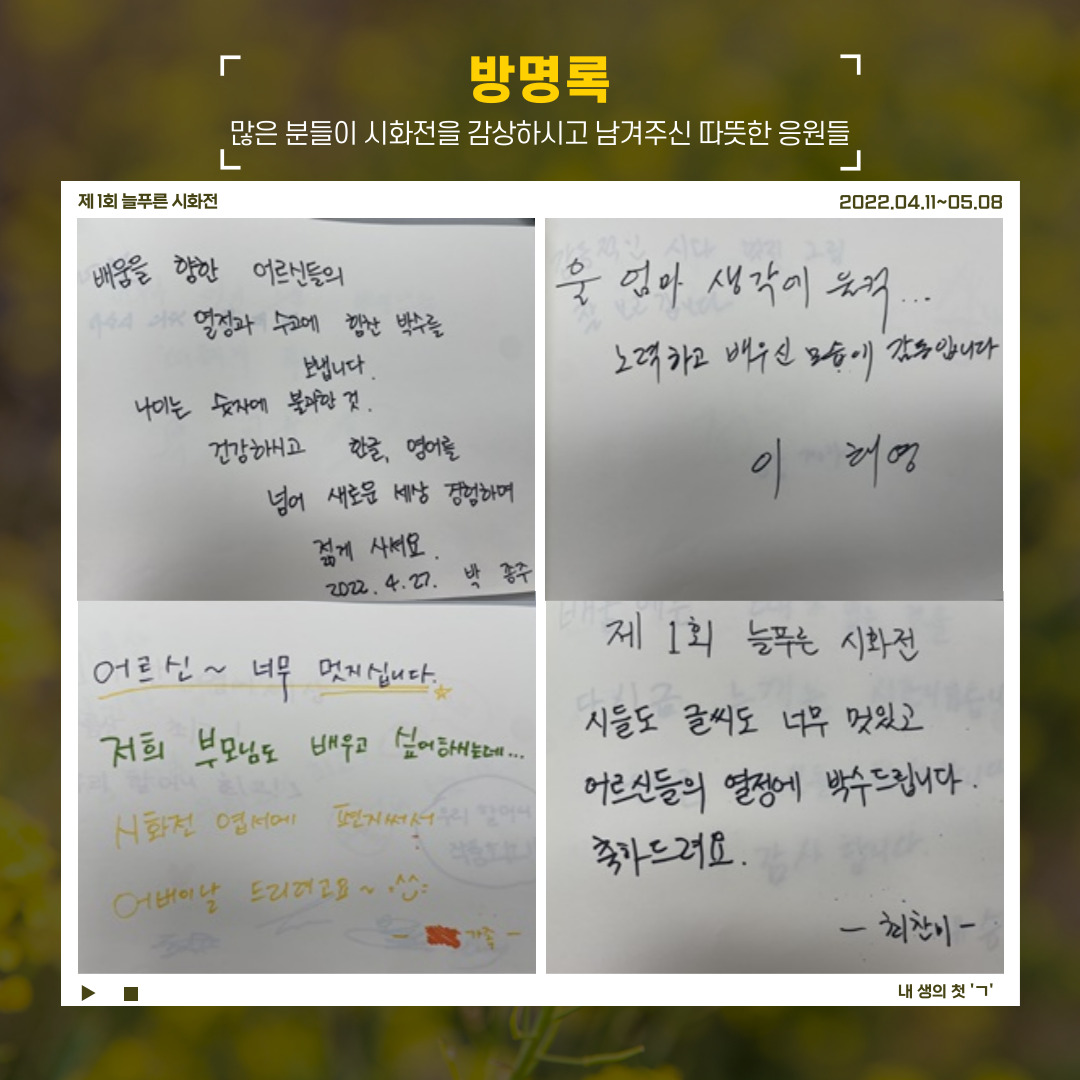 방명록
많은 분들이 시화전을 감상하시고 남겨주신 따뜻한 응원들
제 1회 늘푸른 시화전
2022.04.11~05.08
배움을 향한 어르신들의
열정과 수고에 힘찬 박수를
보냅니다.
나이는 숫자에 불과한 것.
건강하시고 한글, 영어를
넘어 새로운 세상 경험하며
젊게 사셔요.
2022. 4. 27. 박종주
울 엄마 생각에 울컥...
노력하고 배우신 모습에 감동입니다
이 태영
어르신~ 너무 멋지십니다.
저희 부모님도 배우고 싶어하시는데...
시화전 엽서에 편지써서
어버이날 드리려고요~ ^^
- 가족 -
제 1회 늘푸른 시화전
시들도 글씨도 너무 멋있고
어르신들의 열정에 박수드립니다.
축하드려요.
- 최찬이 -
내 생의 첫 'ㄱ'